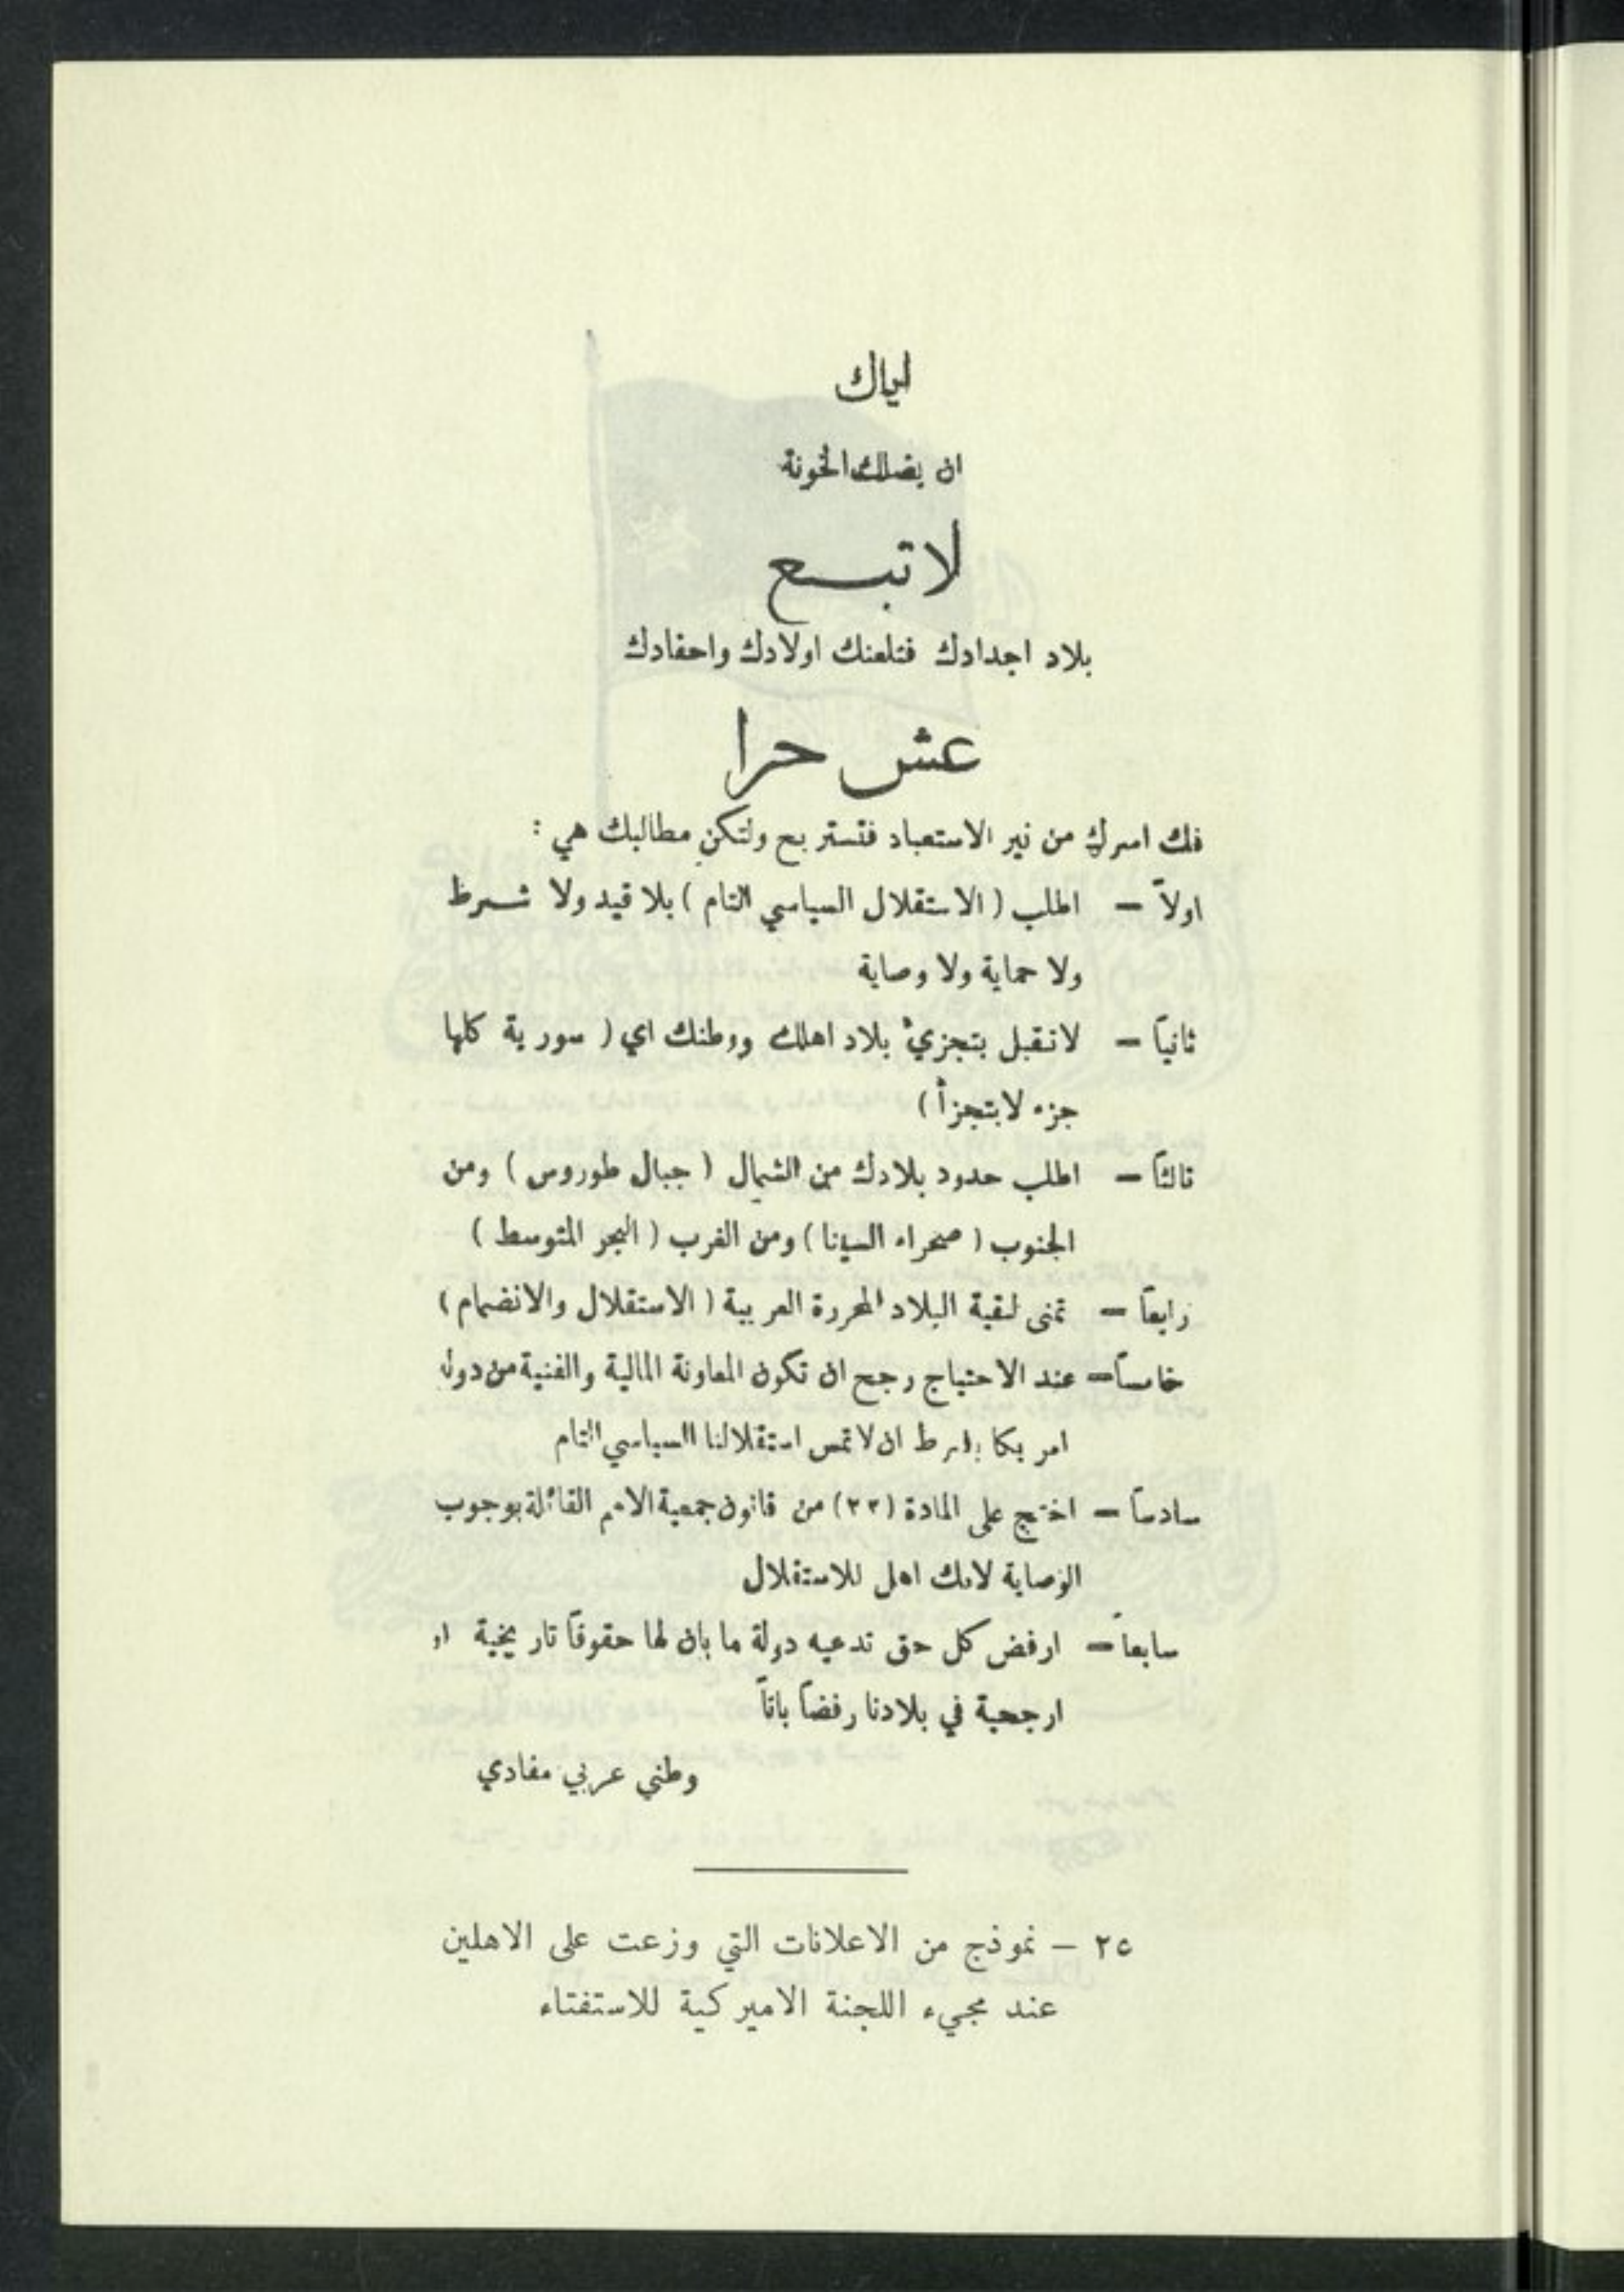 اياك
ان يضلك الخونة
لا تبع
بلاد اجدادك فتلعنك اولادك واحفادك
عش حرا
فك اسرك من نير الاستعباد فتستريح ولتكن مطالبك هي :
اولاً – اطلب ( الاستقلال السياسي التام ) بلا قيد ولا شرط
ولا حماية ولا وصاية
ثانياً – لا تقبل بتجزيء بلاد اهلك ووطنك اي ( سورية كلها
جزء لا يتجزأ )
ثالثاً – اطلب حدود بلادك من الشمال ( جبال طوروس ) ومن
الجنوب ( صحراء السينا ) ومن الغرب ( البحر المتوسط )
رابعاً – تمنى لبقية البلاد المحررة العربية ( الاستقلال والانضمام )
خامساً – عند الاحتياج رجح ان تكون المعاونة المالية والفنية من دول
امريكا بشرط ان لا تمس استقلالنا السياسي التام
سادساً – احتج على المادة (٢٢) من قانون جمعية الامم القائلة بوجوب
الوصاية لانك اهل للاستقلال
سابعاً – ارفض كل حق تدعيه دولة ما بان لها حقوقاً تاريخية او
ارجحية في بلادنا رفضاً باتاً
وطني عربي مفادي
٢٥ – نموذج من الاعلانات التي وزعت على الاهلين
عند مجيء اللجنة الاميركية للاستفتاء